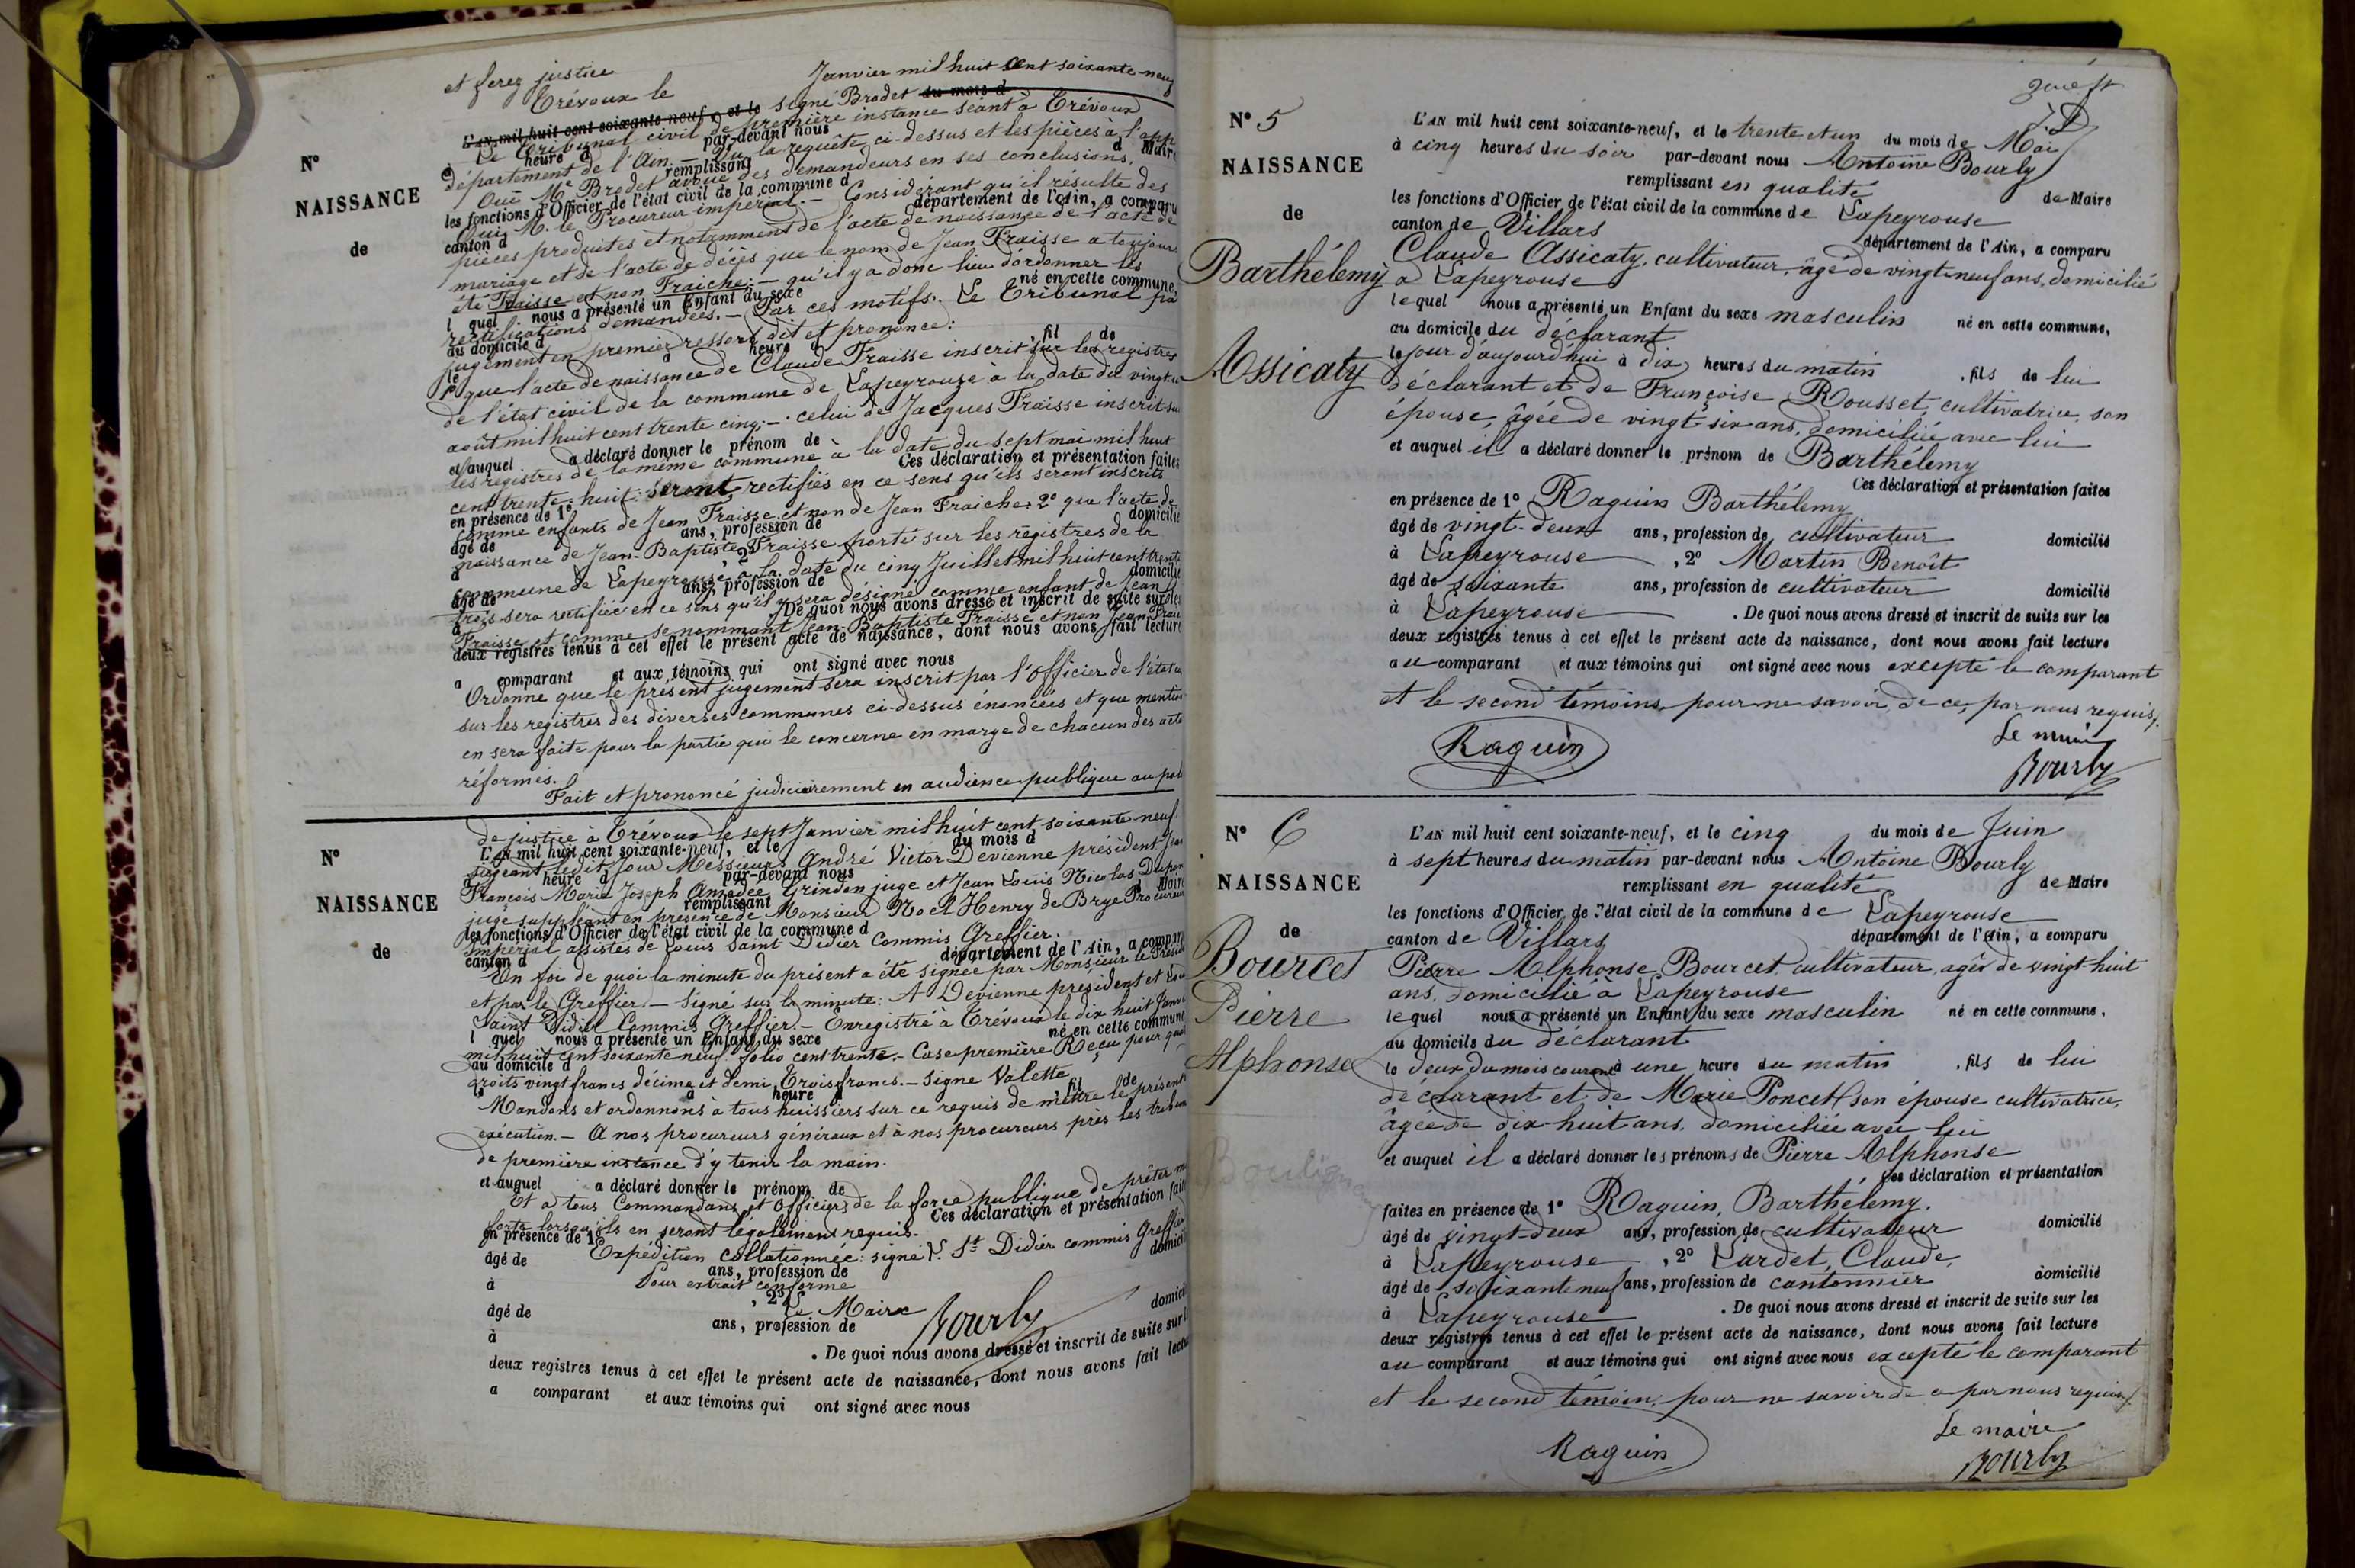 et ferez justice
Trévoux le Janvier mil huit cent soixante neuf
L'AN mil huit cent soixante-neuf, et le signé Brodet du mois d
Le Tribunal civil de première instance séant à Trévoux
à heure d par-devant nous
département de l'Ain. — Vu la requête ci-dessus et les pièces à l'app
N° remplissant d Maire
Ouï Me Brodet avoué des demandeurs en ses conclusions,
NAISSANCE les fonctions d'Officier de l'état civil de la commune d
Ouï M. le Procureur impérial. — Considérant qu'il résulte des
de canton d département de l'Ain, a comparu
pièces produites et notamment de l'acte de naissance de l'acte de
mariage et de l'acte de décès que le nom de Jean Fraisse a toujours
été Fraisse et non Fraiche; — qu'il y a donc lieu d'ordonner les
l quel nous a présenté un Enfant du sexe né en cette commune,
rectifications demandées. — Par ces motifs. Le Tribunal par
au domicile d
jugement en premier ressort dit et prononce:
le à heure d , fil de
1° que l'acte de naissance de Claude Fraisse inscrit sur les registres
de l'état civil de la commune de Lapeyrouse à la date du vingt
août mil huit cent trente cinq; — celui de Jacques Fraisse inscrit sur
et auquel a déclaré donner le prénom de
les registres de la même commune à la date du sept mai mil huit
Ces déclaration et présentation faites
cent trente huit: seront rectifiés en ce sens qu'ils seront inscrits
en présence de 1°
comme enfants de Jean Fraisse et non de Jean Fraiche; 2° que l'acte de
âgé de ans, profession de domicilié
naissance de Jean-Baptiste Fraisse porté sur les registres de la
à , 2°
commune de Lapeyrouse à la date du cinq Juillet mil huit cent trente
âgé de ans, profession de domicilié
trois sera rectifiée en ce sens qu'il y sera désigné comme enfant de Jean
à . De quoi nous avons dressé et inscrit de suite sur les
Fraisse et comme se nommant Jean-Baptiste Fraisse et non Jean Frai
deux registres tenus à cet effet le présent acte de naissance, dont nous avons fait lecture
a comparant et aux témoins qui ont signé avec nous
Ordonne que le présent jugement sera inscrit par l'officier de l'état ci
sur les registres des diverses communes ci-dessus énoncées et que mention
en sera faite pour la partie qui le concerne en marge de chacun des acte
réformés.
Fait et prononcé judiciairement en audience publique au pal
de justice à Trévoux le sept Janvier mil huit cent soixante neuf.
N° L'AN mil huit cent soixante-neuf, et le du mois d
siégeant ledit jour Messieurs André Victor Devienne président Jean
à heure d par-devant nous
NAISSANCE François Marie Joseph Amédée Grindon juge et Jean Louis Nicolas Dupon
remplissant d Maire
juge suppléant en présence de Monsieur Noel Henry de Brye Procureur
les fonctions d'Officier de l'état civil de la commune d
de impérial assistés de Louis Saint Didier Commis Greffier.
canton d département de l'Ain, a comparu
En foi de quoi la minute du présent a été signée par Monsieur le Présid
et par le Greffier. — Signé sur la minute: A Devienne président et Lou
Saint Didier Commis Greffier. — Enregistré à Trévoux le dix huit Janv
l quel nous a présenté un Enfant du sexe né en cette commune
mil huit cent soixante neuf folio cent trente. — Case première Reçu pour
au domicile d
droits vingt francs décime et demi, Trois francs. — Signé Valette
le à heure d , fil de
Mandons et ordonnons à tous huissiers sur ce requis de mettre le présent
exécution. — A nos procureurs généraux et à nos procureurs près les tribun
de première instance d'y tenir la main.
et auquel a déclaré donner le prénom de
Et à tous Commandans et Officiers de la force publique de prêter m
Ces déclaration et présentation fait
forte lorsqu'ils en seront légalement requis.
en présence de 1°
Expédition collationnée: signé L. St Didier commis Greffier
âgé de ans, profession de domicil
à Pour extrait conforme
, 2° Le Maire
âgé de ans, profession de Bourly domicil
à . De quoi nous avons dressé et inscrit de suite sur l
deux registres tenus à cet effet le présent acte de naissance, dont nous avons fait lectu
a comparant et aux témoins qui ont signé avec nous
N° 5
NAISSANCE
de
Barthélemy
Assicaty
L'AN mil huit cent soixante-neuf, et le trente et un du mois de Mai
à cinq heures du soir par-devant nous Antoine Bourly
remplissant en qualité de Maire
les fonctions d'Officier de l'état civil de la commune de Lapeyrouse
canton de Villars département de l'Ain, a comparu
Claude Assicaty, cultivateur, âgé de vingt-neuf ans, domicilié
à Lapeyrouse
lequel nous a présenté un Enfant du sexe masculin né en cette commune,
au domicile du déclarant
le jour d'aujourd'hui à dix heures du matin , fils de lui
déclarant et de Françoise Rousset, cultivatrice, son
épouse, âgée de vingt-six ans, domiciliée avec lui
et auquel il a déclaré donner le prénom de Barthélemy
Ces déclaration et présentation faites
en présence de 1° Raquin Barthélemy
âgé de vingt-deux ans, profession de cultivateur domicilié
à Lapeyrouse , 2° Martin Benoît
âgé de soixante ans, profession de cultivateur domicilié
à Lapeyrouse . De quoi nous avons dressé et inscrit de suite sur les
deux registres tenus à cet effet le présent acte de naissance, dont nous avons fait lecture
au comparant et aux témoins qui ont signé avec nous excepté le comparant
et le second témoins pour ne savoir, de ce, par nous requis.
Raquin
Le maire
Bourly
N° 6
NAISSANCE
de
Bourcet
Pierre
Alphonse
L'AN mil huit cent soixante-neuf, et le cinq du mois de Juin
à sept heures du matin par-devant nous Antoine Bourly
remplissant en qualité de Maire
les fonctions d'Officier de l'état civil de la commune de Lapeyrouse
canton de Villars département de l'Ain, a comparu
Pierre Alphonse Bourcet, cultivateur, agé de vingt huit
ans, domicilié à Lapeyrouse
lequel nous a présenté un Enfant du sexe masculin né en cette commune,
au domicile du déclarant
le deux du mois courant à une heure du matin , fils de lui
déclarant et de Marie Poncet son épouse cultivatrice,
âgée de dix-huit ans, domiciliée avec lui
et auquel il a déclaré donner les prénoms de Pierre Alphonse
Ces déclaration et présentation
faites en présence de 1° Raquin, Barthélemy.
âgé de vingt-deux ans, profession de cultivateur domicilié
à Lapeyrouse , 2° Lardet, Claude,
âgé de soixante neuf ans, profession de cantonnier domicilié
à Lapeyrouse . De quoi nous avons dressé et inscrit de suite sur les
deux registres tenus à cet effet le présent acte de naissance, dont nous avons fait lecture
au comparant et aux témoins qui ont signé avec nous excepté le comparant
et le second témoin, pour ne savoir de ce par nous requis
Raquin
Le maire
Bourly